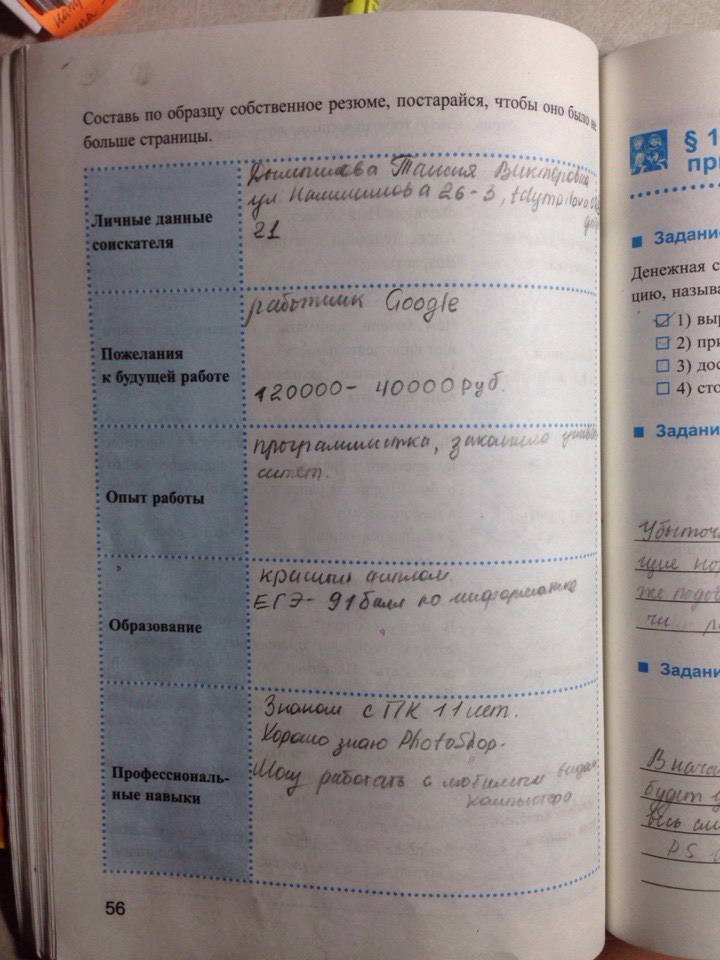 Составь по образцу собственное резюме, постарайся, чтобы оно было не
больше страницы.
Личные данные
соискателя
Таисия
ул. 26-3,
21
Пожелания
к будущей работе
работник Google
120000- 40000 руб.
Опыт работы
программистка, закончила
Образование
красный диплом.
ЕГЭ- 91 балл по информатике
Профессиональ-
ные навыки
Знаком с ПК 11 лет.
Хорошо знаю PhotoShop.
Могу работать с любимым видом
компьютера
56
§ 1
при
Задание
Денежная с
цию, называ
1) выр
2) при
3) дос
4) сто
Задани
Убыточ
же подов
чи
Задани
В нача
будет
PS